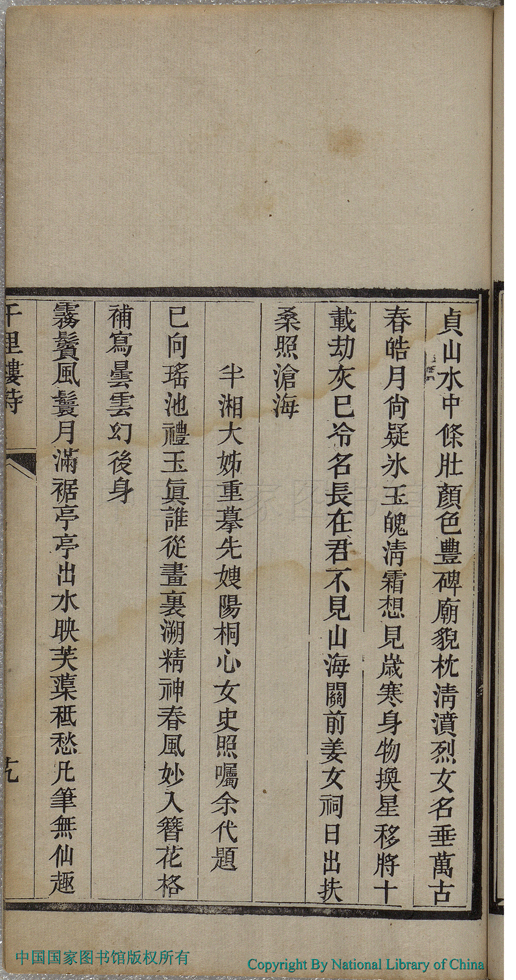 貞山水中條壯顏色豐碑廟貌枕淸濆烈女名垂萬古
春皓月尙疑氷玉魄淸霜想見歲寒身物換星移將十
載劫灰已冷名長在君不見山海關前姜女祠日出扶
桑照滄海
半湘大姊重摹先嫂陽桐心女史照囑余代題
已向瑤池禮玉眞誰從畫裏溯精神春風妙入簪花格
補寫曇雲幻後身
霧鬢風鬟月滿裾亭亭出水映芙蕖秪愁凡筆無仙趣
千里樓詩
九
中国国家图书馆版权所有
Copyright By National Library of China